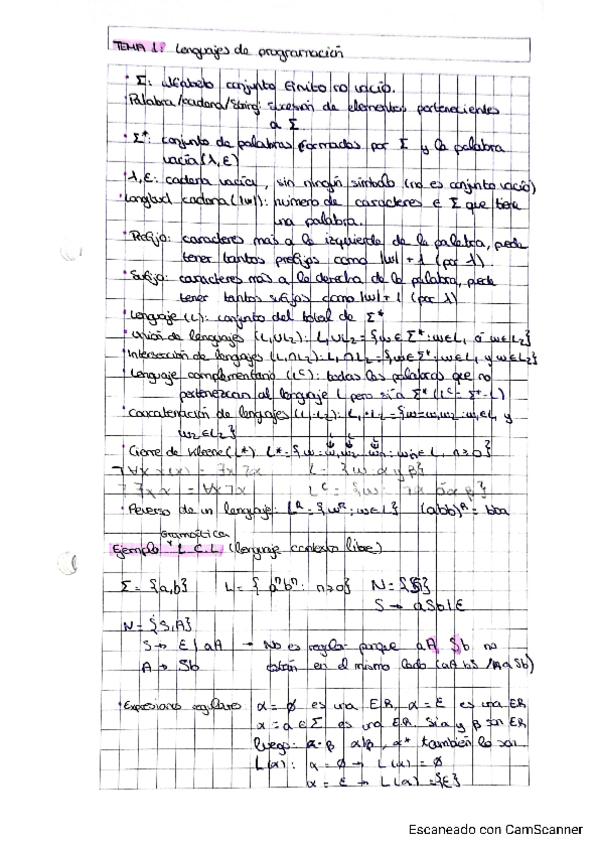 TEMA 1: Lenguajes de programación
· Σ: Alfabeto conjunto finito no vacío.
Palabra/cadena/String: sucesión de elementos pertenecientes
a Σ
· Σ*: conjunto de palabras formadas por Σ y la palabra
vacía (λ, ε)
· λ, ε: cadena vacía, sin ningún símbolo (no es conjunto vacío)
· Longitud cadena (|w|): número de caracteres ∈ Σ que tiene
una palabra.
· Prefijo: caracteres más a la izquierda de la palabra, puede
tener tantos prefijos como |w| + 1 (por λ)
· Sufijo: caracteres más a la derecha de la palabra, puede
tener tantos sufijos como |w| + 1 (por λ)
· Lenguaje (L): conjunto del total de Σ*
· Unión de lenguajes (L₁∪L₂): L₁∪L₂ = {w∈Σ*: w∈L₁ ó w∈L₂}
· Intersección de lengajes (L₁∩L₂): L₁∩L₂ = {w∈Σ*: w∈L₁ y w∈L₂}
· Lenguaje complementario (Lᶜ): todas las palabras que no
pertenezcan al lenguaje L pero si a Σ* (Lᶜ = Σ* - L)
· Concatenación de lengajes (L₁·L₂): L₁·L₂ = {w=w₁w₂: w₁∈L₁ y
w₂∈L₂}
· Cierre de Kleene (L*)
· Reverso de un lenguaje: Lᴿ = {wᴿ: w∈L} (abb)ᴿ = bba
Gramática
Ejemplo L.C.L (lenguaje contexto libre)
Σ = {a,b} L = { aⁿbⁿ: n≥0} N = {S}
S → aSb|ε
N = {S,A}
S → ε | aA → No es regular porque aA Sb no
A → Sb están en el mismo lado
· Expresiones regulares α = ∅ es una ER, α = ε es una ER
α = a ∈ Σ es una ER. Si α y β son ER
luego: α·β α|β, α* también lo son
L(α): α = ∅ → L(α) = ∅
α = ε → L(α) = {ε}
Escaneado con CamScanner